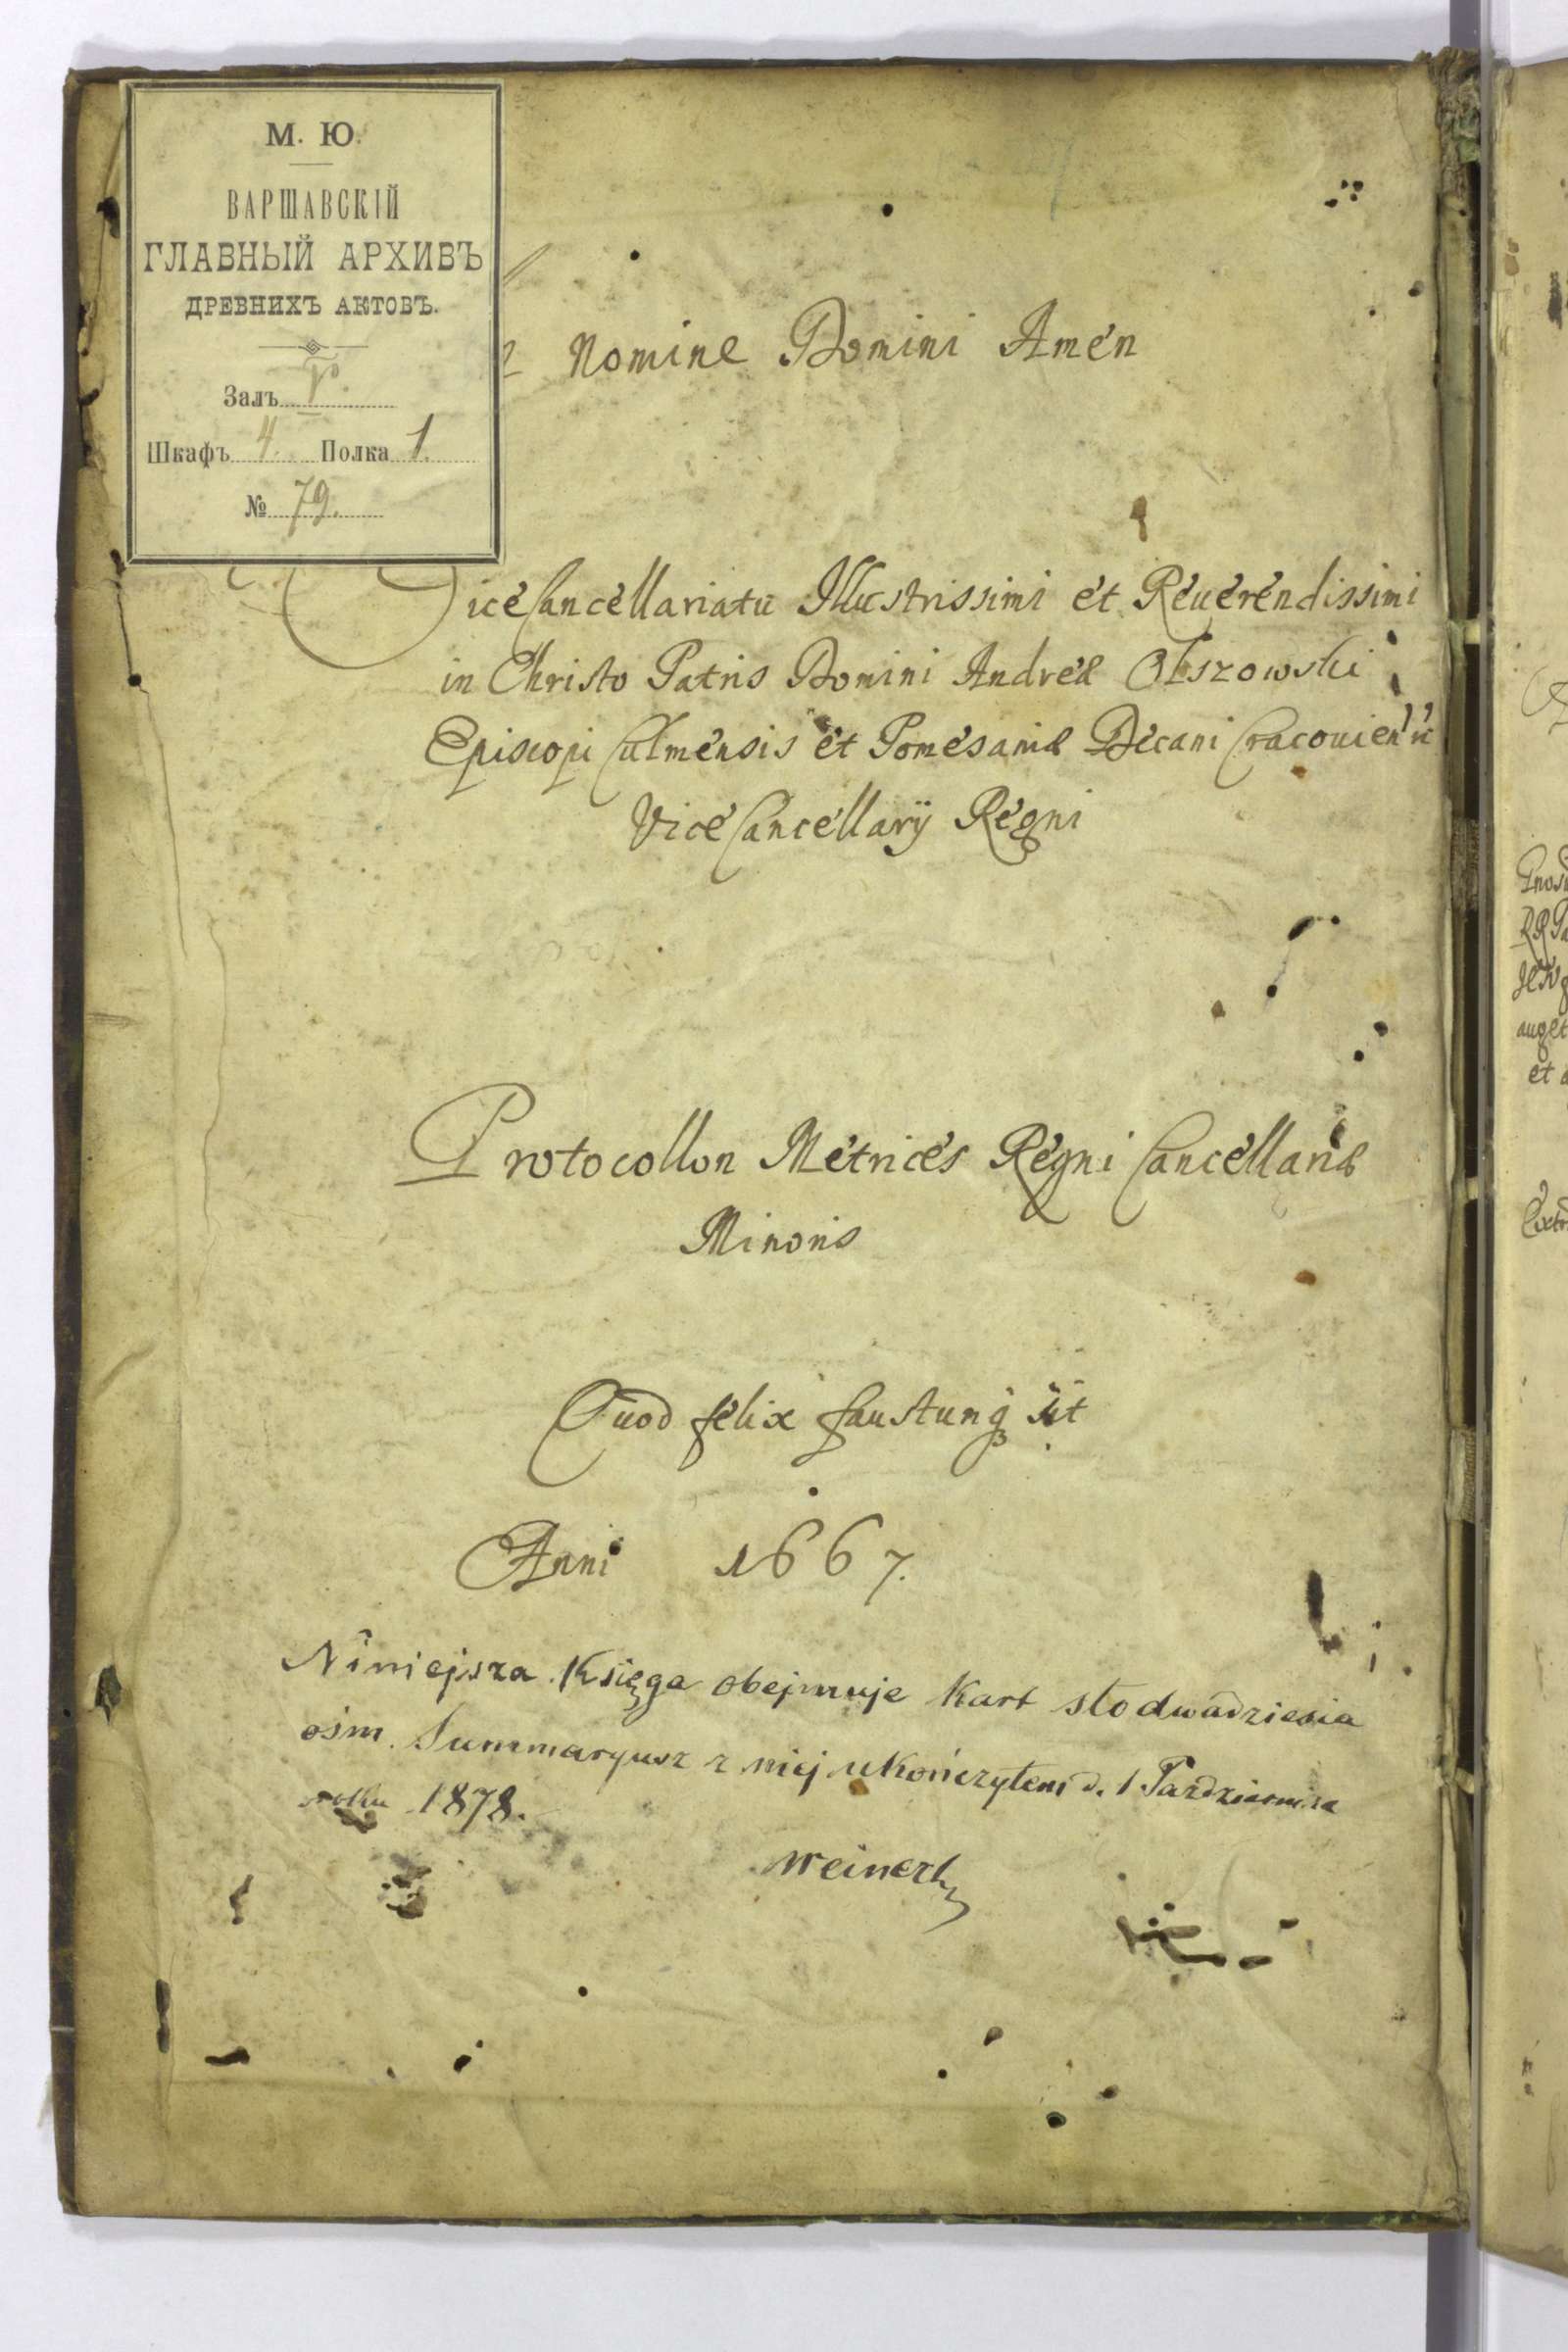 М. Ю.
ВАРШАВСКІЙ
ГЛАВНЫЙ АРХИВЪ
ДРЕВНИХЪ АКТОВЪ.
Залъ
Шкафъ 4. Полка 1.
№ 79.
Nomine Domini Amen
ViceCancellariatu Illustrissimi et Reuerendissimi
in Christo Patris Domini Andreæ Olszowski
Episcopi Culmensis et Pomesaniæ Decani
ViceCancellarÿ Regni
Protocollon Metrices Regni Cancellariæ
Minoris
Quod felix faustunq sit
Anni 1667.
Niniejsza Księga obejmuje Kart stodwadzieścia
ośm. Summaryusz z niej ukończyłem d. 1 Października
roku 1878.
Weinert